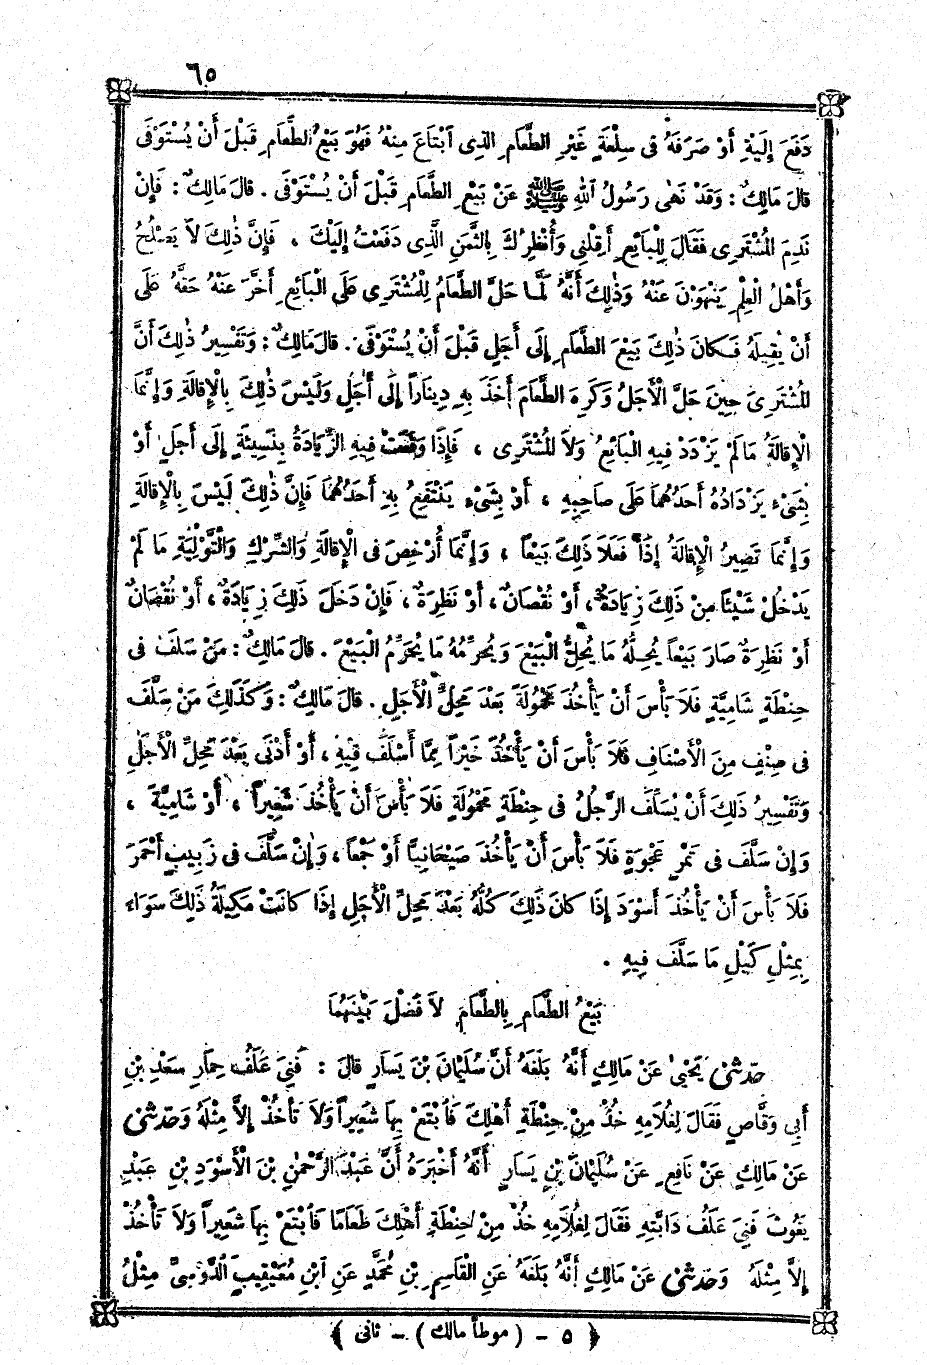 ٦٥
دَفَعَ إِلَيْهِ أَوْ صَرَفَهُ فِى سِلْعَةٍ غَيْرِ الطَّعَامِ الَّذِى ابْتَاعَ مِنْهُ فَهُوَ بَيْعُ الطَّعَامِ قَبْلَ أَنْ يُسْتَوْفَى
قَالَ مَالِكٌ : وَقَدْ نَهَى رَسُولُ اللهِ ﷺ عَنْ بَيْعِ الطَّعَامِ قَبْلَ أَنْ يُسْتَوْفَى . قَالَ مَالِكٌ : فَإِنْ
نَدِمَ الْمُشْتَرِى فَقَالَ لِلْبَائِعِ أَقِلْنِى وَأُنْظِرُكَ بِالثَّمَنِ الَّذِى دَفَعْتُ إِلَيْكَ ، فَإِنَّ ذٰلِكَ لاَ يَصْلُحُ
وَأَهْلُ الْعِلْمِ يَنْهَوْنَ عَنْهُ وَذٰلِكَ أَنَّهُ لَمَّا حَلَّ الطَّعَامُ لِلْمُشْتَرِى عَلَى الْبَائِعِ أَخَّرَ عَنْهُ حَقَّهُ عَلَى
أَنْ يُقِيلَهُ فَكَانَ ذٰلِكَ بَيْعَ الطَّعَامِ إِلَى أَجَلٍ قَبْلَ أَنْ يُسْتَوْفَى . قَالَ مَالِكٌ : وَتَفْسِيرُ ذٰلِكَ أَنَّ
الْمُشْتَرِىَ حِينَ حَلَّ الْأَجَلُ وَكَرِهَ الطَّعَامَ أَخَذَ بِهِ دِينَاراً إِلَى أَجَلٍ وَلَيْسَ ذٰلِكَ بِالْإِقَالَةِ وَإِنَّمَا
الْإِقَالَةُ مَا لَمْ يَزْدَدْ فِيهِ الْبَائِعُ وَلاَ الْمُشْتَرِى ، فَإِذَا وَقَعَتْ فِيهِ الزِّيَادَةُ بِنَسِيئَةٍ إِلَى أَجَلٍ أَوْ
بِشَىْءٍ يَزْدَادُهُ أَحَدُهُمَا عَلَى صَاحِبِهِ ، أَوْ بِشَىْءٍ يَنْتَفِعُ بِهِ أَحَدُهُمَا فَإِنَّ ذٰلِكَ لَيْسَ بِالْإِقَالَةِ
وَإِنَّمَا تَصِيرُ الْإِقَالَةُ إِذَا فَعَلاَ ذَلِكَ بَيْعاً ، وَإِنَّمَا أُرْخِصَ فِى الْإِقَالَةِ وَالشِّرْكِ وَالتَّوْلِيَةِ مَا لَمْ
يَدْخُلْ شَيْئاً مِنْ ذَلِكَ زِيَادَةٌ ، أَوْ نُقْصَانٌ ، أَوْ نَظِرَةٌ ، فَإِنْ دَخَلَ ذَلِكَ زِيَادَةٌ ، أَوْ نُقْصَانٌ
أَوْ نَظِرَةٌ صَارَ بَيْعاً يُحِلُّهُ مَا يُحِلُّ الْبَيْعَ وَيُحَرِّمُهُ مَا يُحَرِّمُ الْبَيْعَ . قَالَ مَالِكٌ : مَنْ سَلَّفَ فِى
حِنْطَةٍ شَامِيَّةٍ فَلاَ بَأْسَ أَنْ يَأْخُذَ مَحْمُولَةً بَعْدَ مَحِلِّ الْأَجَلِ . قَالَ مَالِكٌ : وَكَذَلِكَ مَنْ سَلَّفَ
فِى صِنْفٍ مِنَ الْأَصْنَافِ فَلاَ بَأْسَ أَنْ يَأْخُذَ خَيْراً مِمَّا أَسْلَفَ فِيهِ ، أَوْ أَدْنَى بَعْدَ مَحِلِّ الْأَجَلِ
وَتَفْسِيرُ ذَلِكَ أَنْ يُسَلِّفَ الرَّجُلُ فِى حِنْطَةٍ مَحْمُولَةٍ فَلاَ بَأْسَ أَنْ يَأْخُذَ شَعِيراً ، أَوْ شَامِيَّةً ،
وَإِنْ سَلَّفَ فِى تَمْرٍ عَجْوَةٍ فَلاَ بَأْسَ أَنْ يَأْخُذَ صَيْحَانِيًّا أَوْ جَمْعاً ، وَإِنْ سَلَّفَ فِى زَبِيبٍ أَحْمَرَ
فَلاَ بَأْسَ أَنْ يَأْخُذَ أَسْوَدَ إِذَا كَانَ ذَلِكَ كُلُّهُ بَعْدَ مَحِلِّ الْأَجَلِ إِذَا كَانَتْ مَكِيلَةُ ذَلِكَ سَوَاءً
بِمِثْلِ كَيْلِ مَا سَلَّفَ فِيهِ .
بَيْعُ الطَّعَامِ بِالطَّعَامِ لاَ فَضْلَ بَيْنَهُمَا
حَدَّثَنِى يَحْيَى عَنْ مَالِكٍ أَنَّهُ بَلَغَهُ أَنَّ سُلَيْمَانَ بْنَ يَسَارٍ قَالَ : فَنِىَ عَلَفُ حِمَارِ سَعْدِ بْنِ
أَبِى وَقَّاصٍ فَقَالَ لِغُلاَمِهِ خُذْ مِنْ حِنْطَةِ أَهْلِكَ فَابْتَعْ بِهَا شَعِيراً وَلاَ تَأْخُذْ إِلاَّ مِثْلَهُ وَحَدَّثَنِى
عَنْ مَالِكٍ عَنْ نَافِعٍ عَنْ سُلَيْمَانَ بْنِ يَسَارٍ أَنَّهُ أَخْبَرَهُ أَنَّ عَبْدَ الرَّحْمٰنِ بْنَ الْأَسْوَدِ بْنِ عَبْدِ
يَغُوثَ فَنِىَ عَلَفُ دَابَّتِهِ فَقَالَ لِغُلاَمِهِ خُذْ مِنْ حِنْطَةِ أَهْلِكَ طَعَامًا فَابْتَعْ بِهَا شَعِيراً وَلاَ تَأْخُذْ
إِلاَّ مِثْلَهُ وَحَدَّثَنِى عَنْ مَالِكٍ أَنَّهُ بَلَغَهُ عَنِ الْقَاسِمِ بْنِ مُحَمَّدٍ عَنِ ابْنِ مُعَيْقِيبٍ الدَّوْسِىِّ مِثْلُ
﴿ ٥ - ( موطأ مالك ) - ثانى ﴾